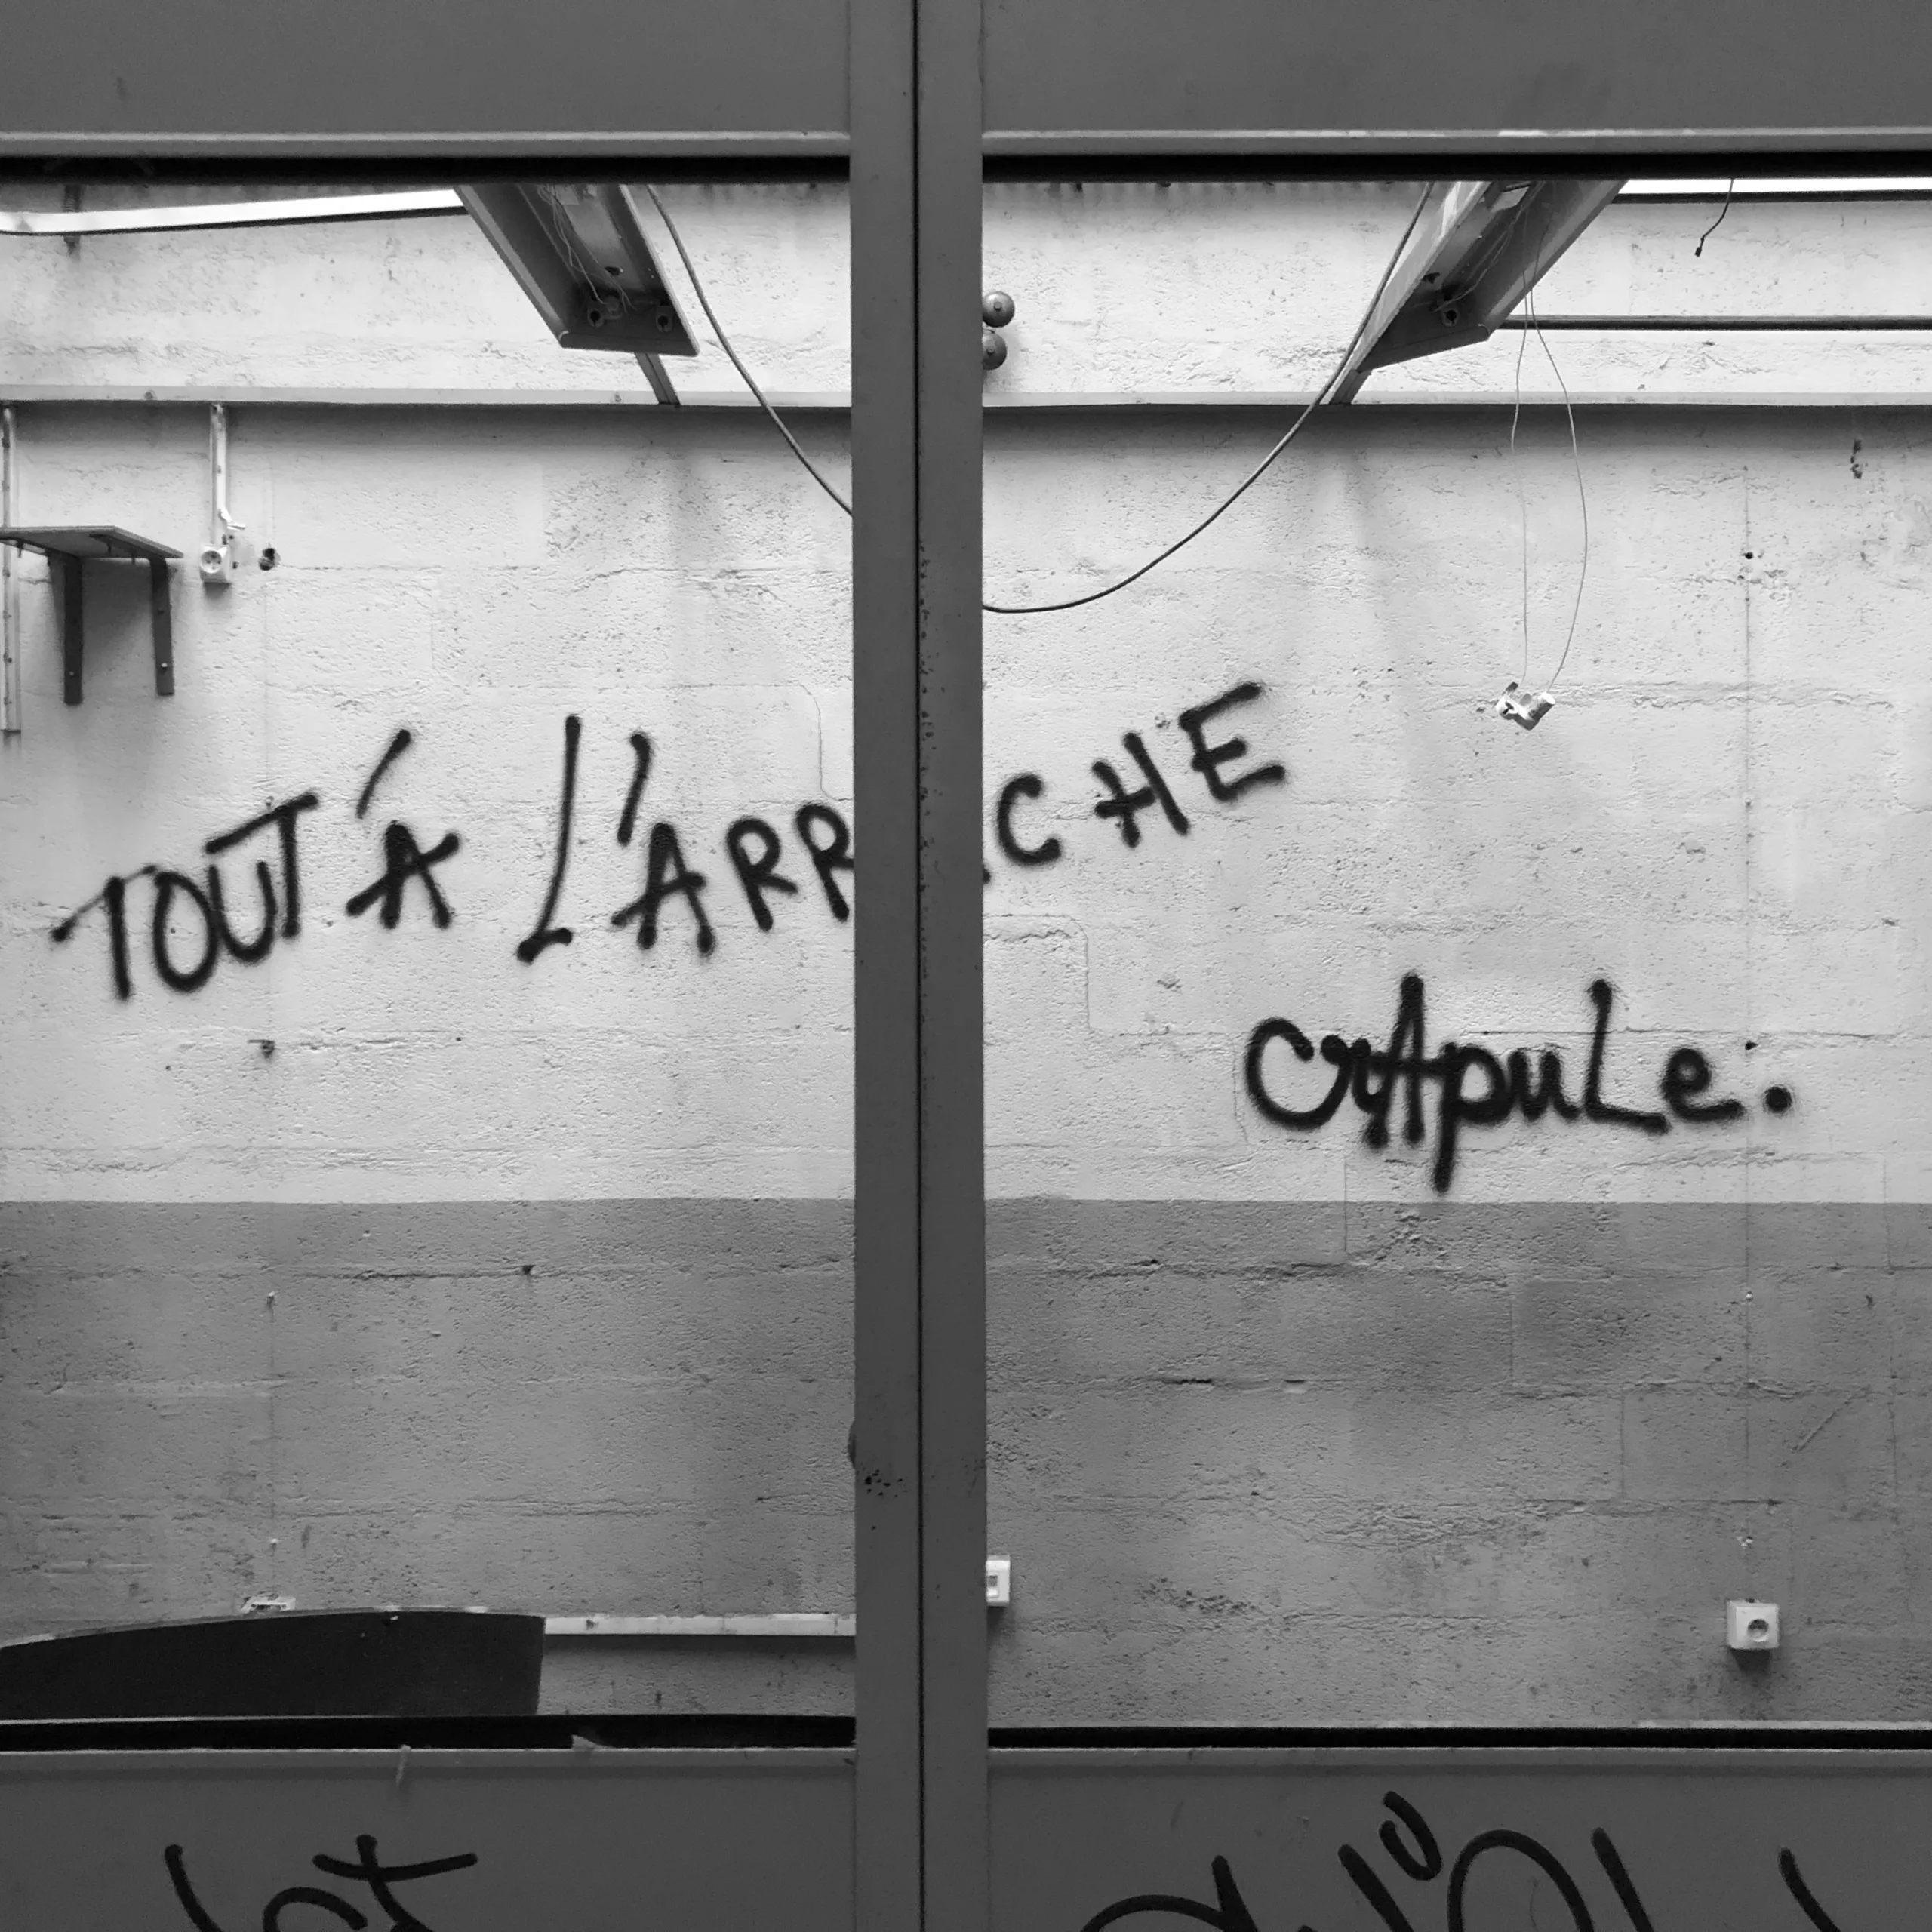 TOUT Á L'ARRACHE
crApuLe.